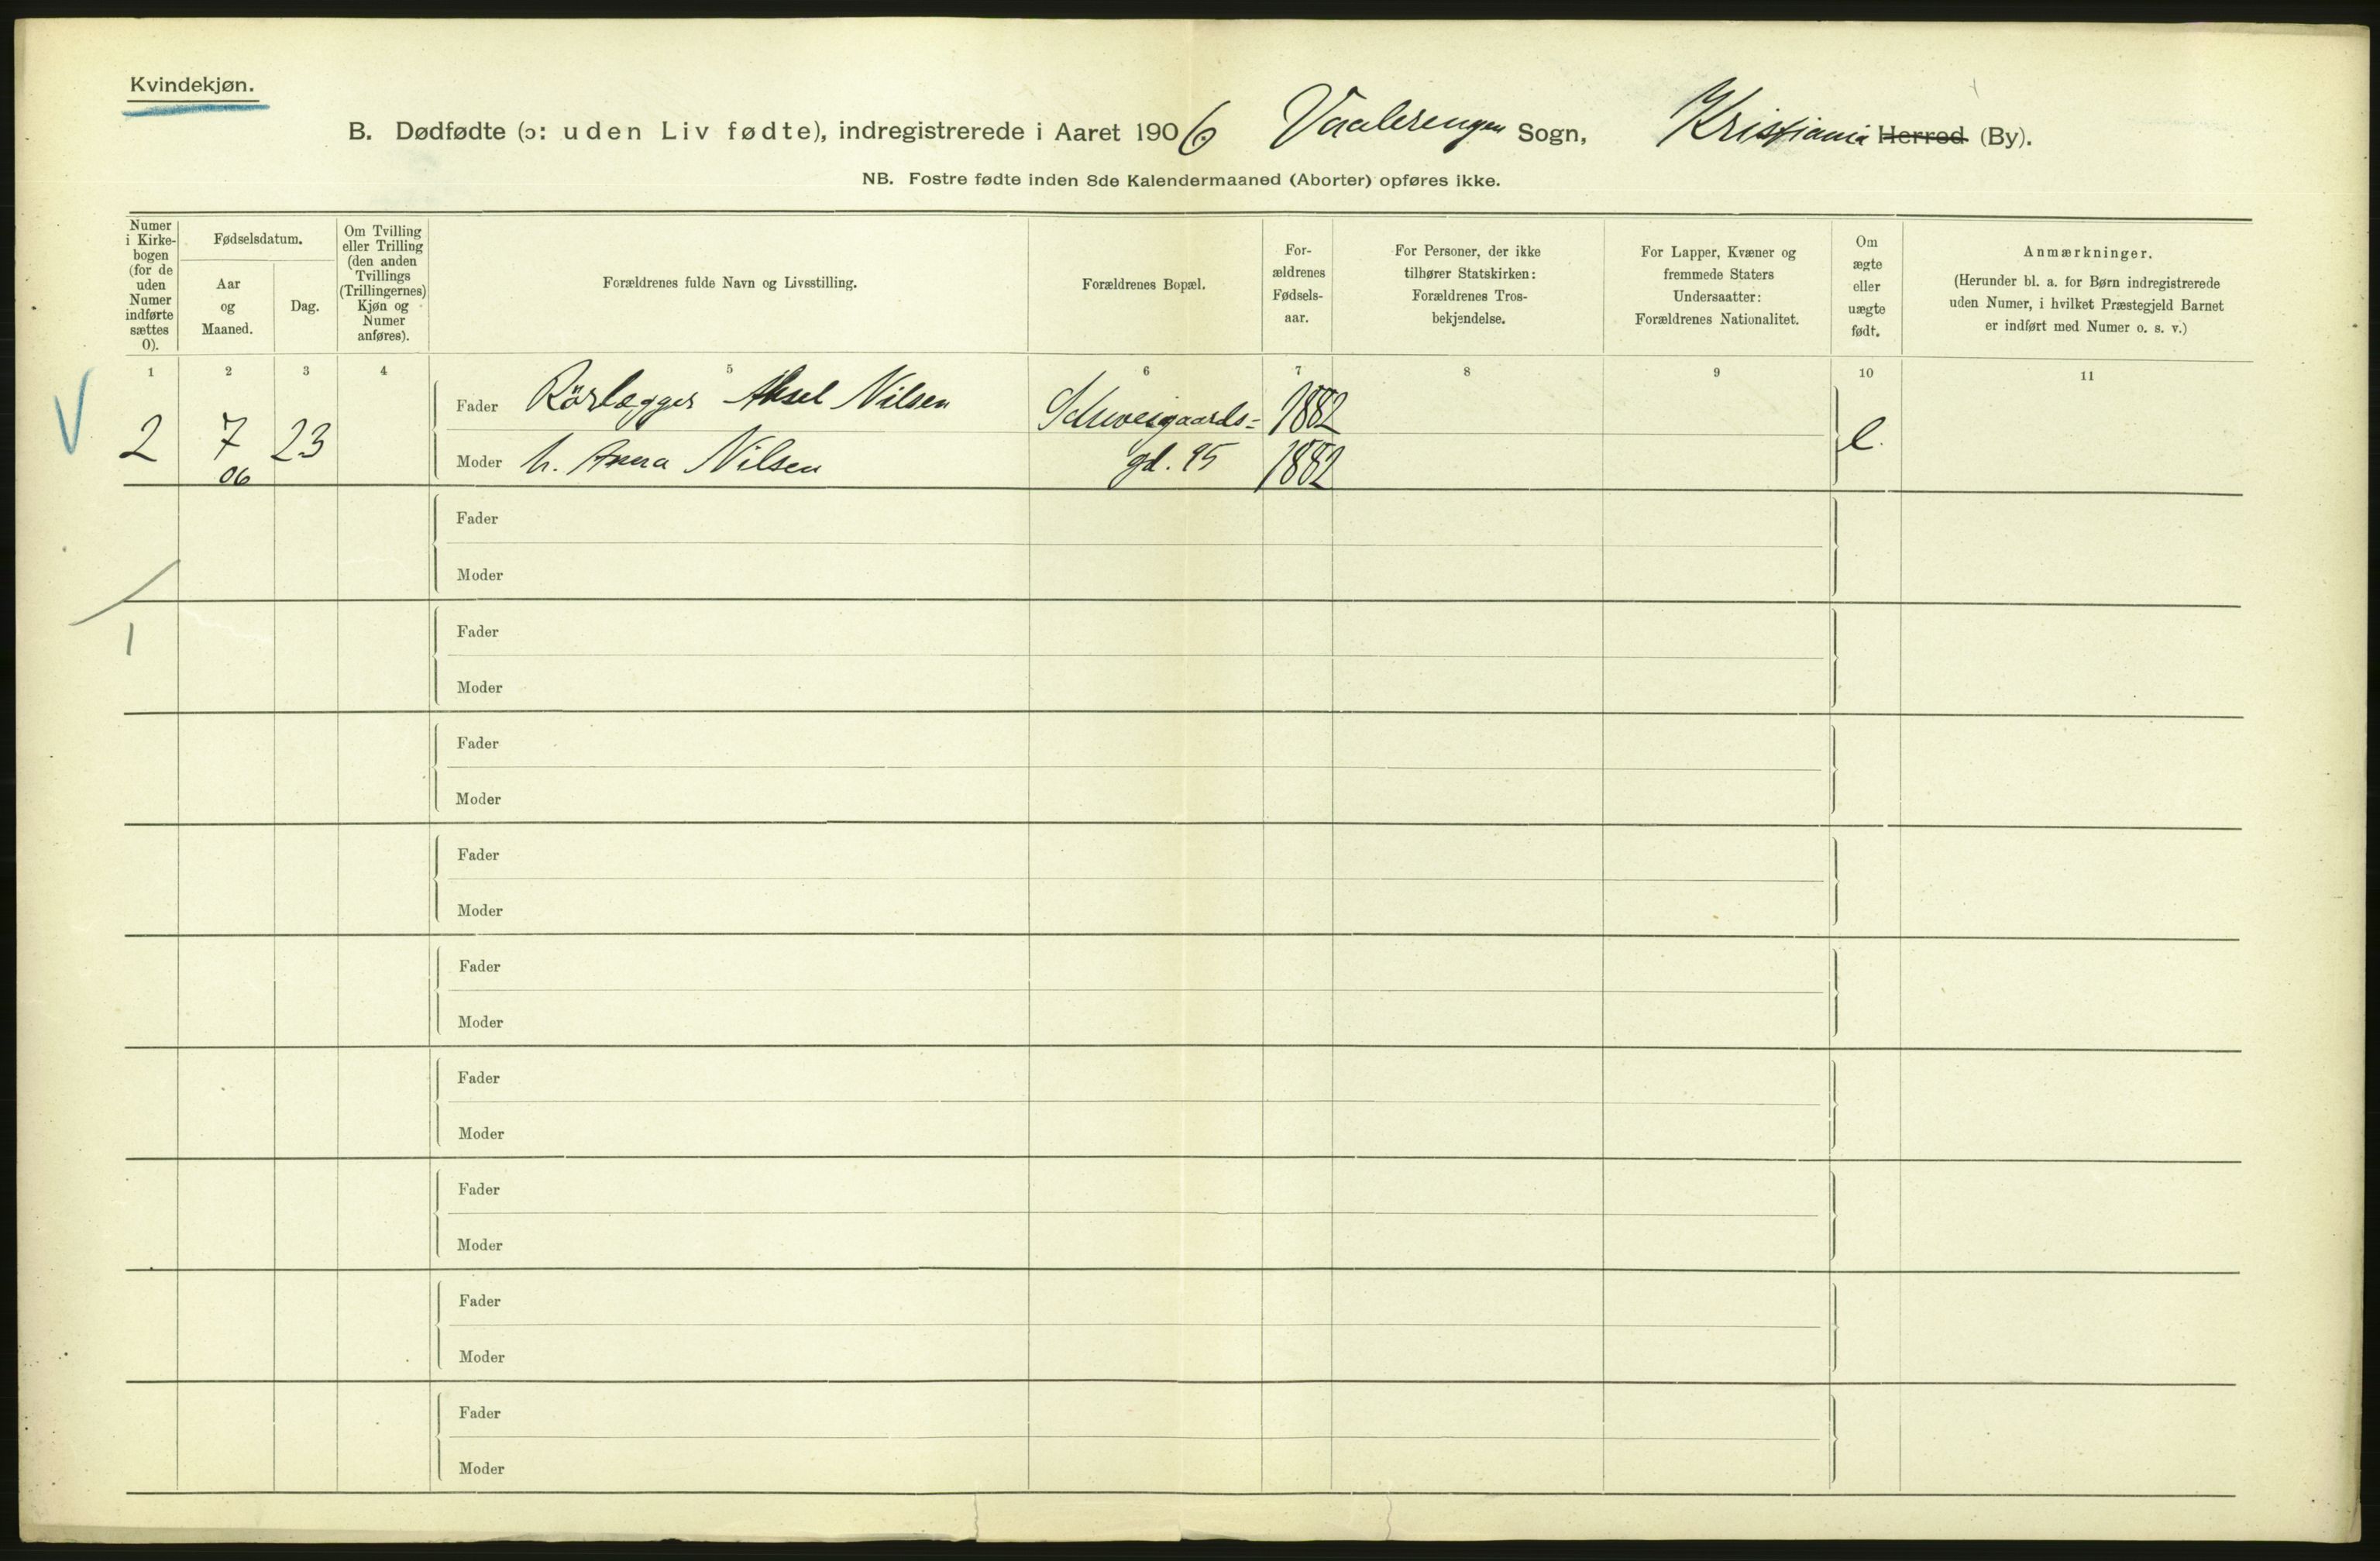 Kvindekjøn.
B. Dødfødte (ɔ: uden Liv fødte), indregistrerede i Aaret 1906 Vaalerengen Sogn, Kristiania Herred (By).
NB. Fostre fødte inden 8de Kalendermaaned (Aborter) opføres ikke.
Numer
i Kirke-
bogen
(for de
uden
Numer
indførte
sættes
0).
Fødselsdatum.
Aar
og
Maaned.
Dag.
Om Tvilling
eller Trilling
(den anden
Tvillings
(Trillingernes)
Kjøn og
Numer
anføres).
Forældrenes fulde Navn og Livsstilling.
Forældrenes Bopæl.
For-
ældrenes
Fødsels-
aar.
For Personer, der ikke
tilhører Statskirken:
Forældrenes Tros-
bekjendelse.
For Lapper, Kvæner og
fremmede Staters
Undersaatter:
Forældrenes Nationalitet.
Om
ægte
eller
uægte
født.
Anmærkninger.
(Herunder bl. a. for Børn indregistrerede
uden Numer, i hvilket Præstegjeld Barnet
er indført med Numer o. s. v.)
1 2 3 4 5 6 7 8 9 10 11
Fader Rörlægger Aksel Nilsen Schweigaards= 1882
2 7 23 e.
06
Moder h. Anna Nilsen gd. 95 1882
Fader
Moder
1
Fader
Moder
Fader
Moder
Fader
Moder
Fader
Moder
Fader
Moder
Fader
Moder
Fader
Moder
Fader
Moder